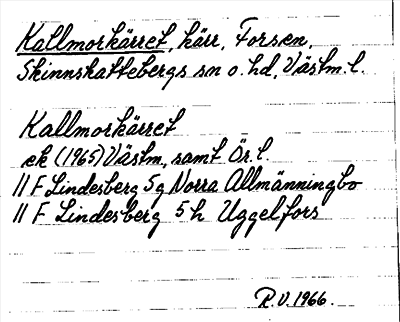 Kallmorkärret, kärr, Forsen,
Skinnskattebergs sn o. hd, Västm. l.
Kallmorkärret
ek (1965) Västm. samt Ör. l.
11 F Lindesberg 5g Norra Allmänningbo
11 F Lindesberg 5h Uggelfors
R.V. 1966.